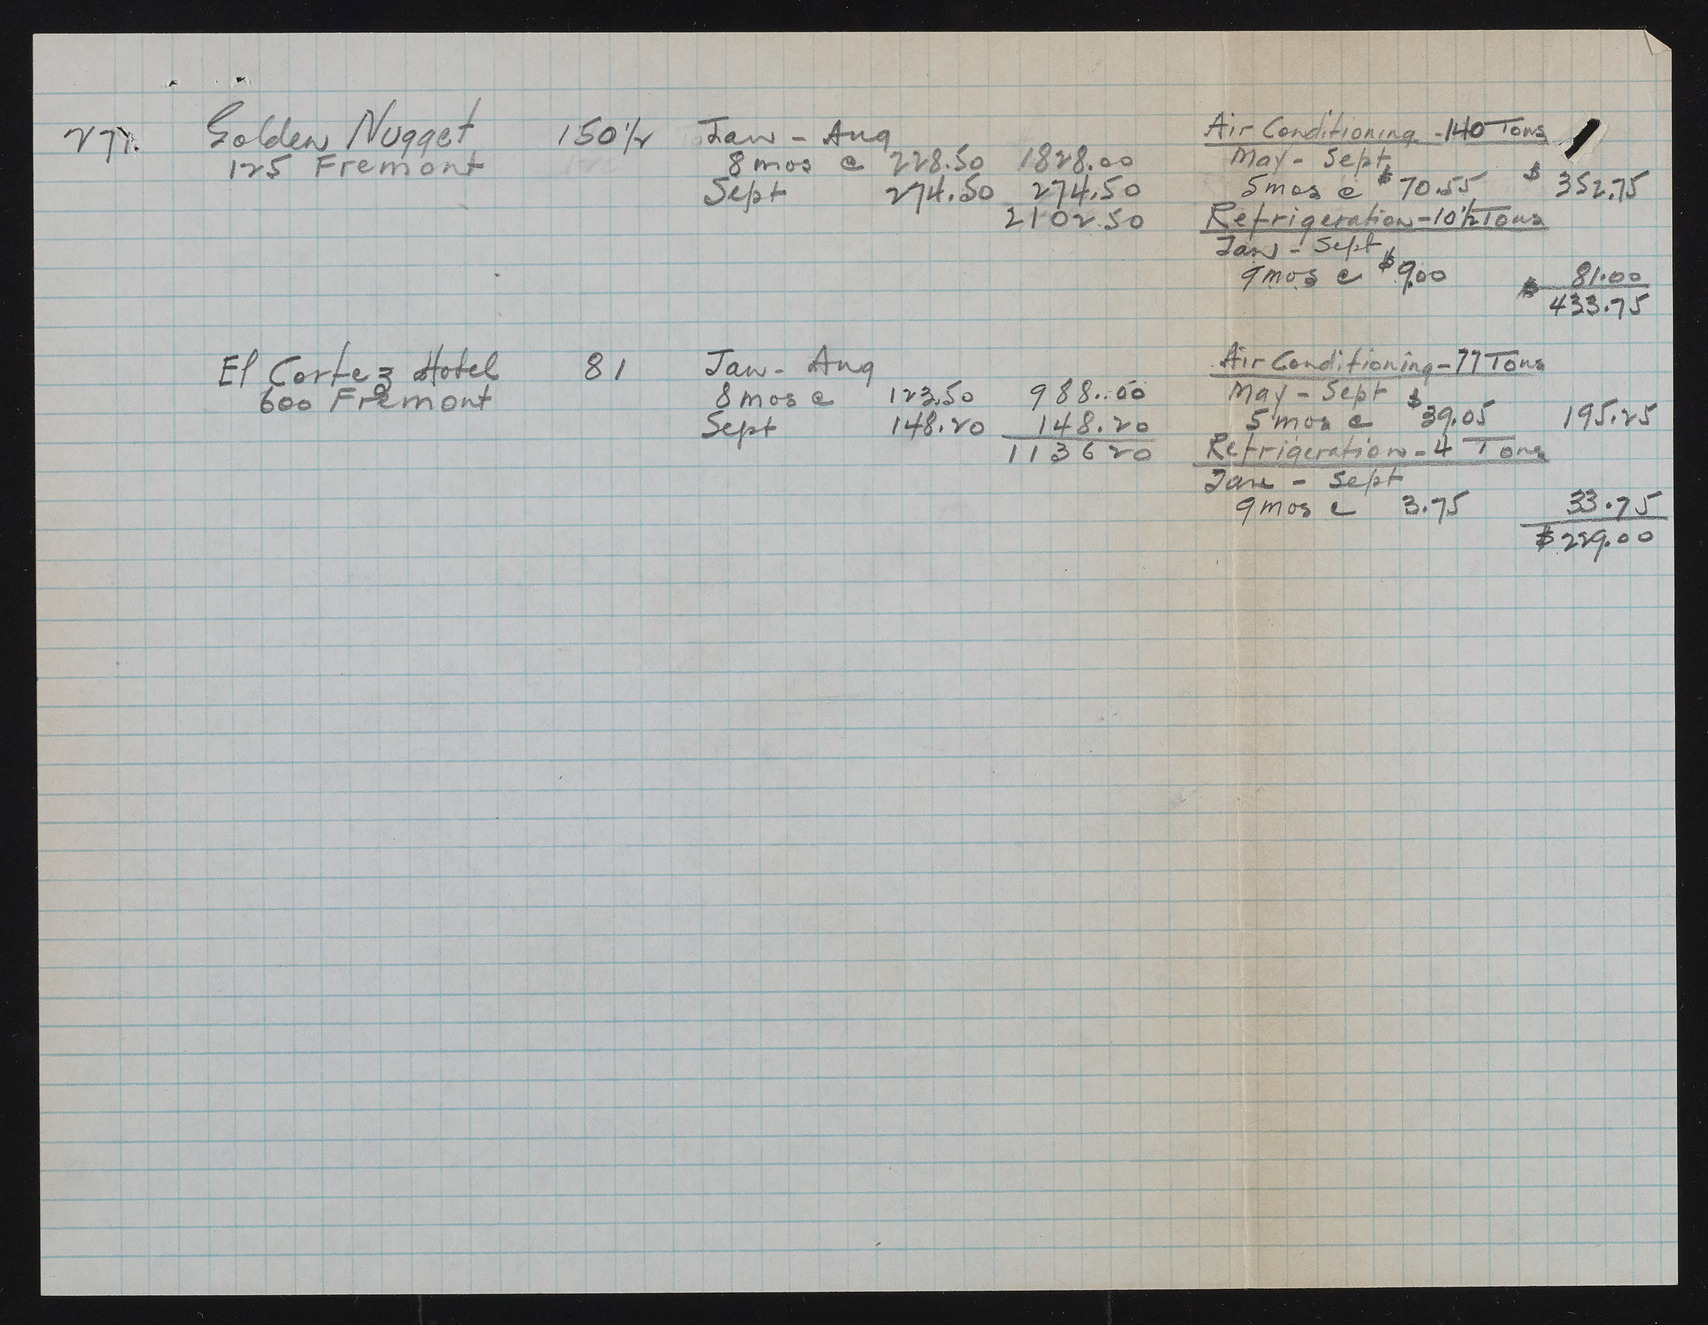 271. Golden Nugget 150½ Jan - Aug Air Conditioning - 140 Tons
125 Fremont 8 mos @ 228.50 1828.00 May - Sept
Sept 274.50 274.50 5 mos @ $70.55 $352.75
2102.50 Refrigeration - 10½ Tons
Jan - Sept
9 mos @ $9.00 81.00
$433.75
El Cortez Hotel 81 Jan - Aug Air Conditioning - 77 Tons
600 Fremont 8 mos @ 123.50 988.00 May - Sept
Sept 148.20 148.20 5 mos @ $39.05 195.25
1136 20 Refrigeration - 4 Tons
Jan - Sept
9 mos @ 3.75 33.75
$229.00